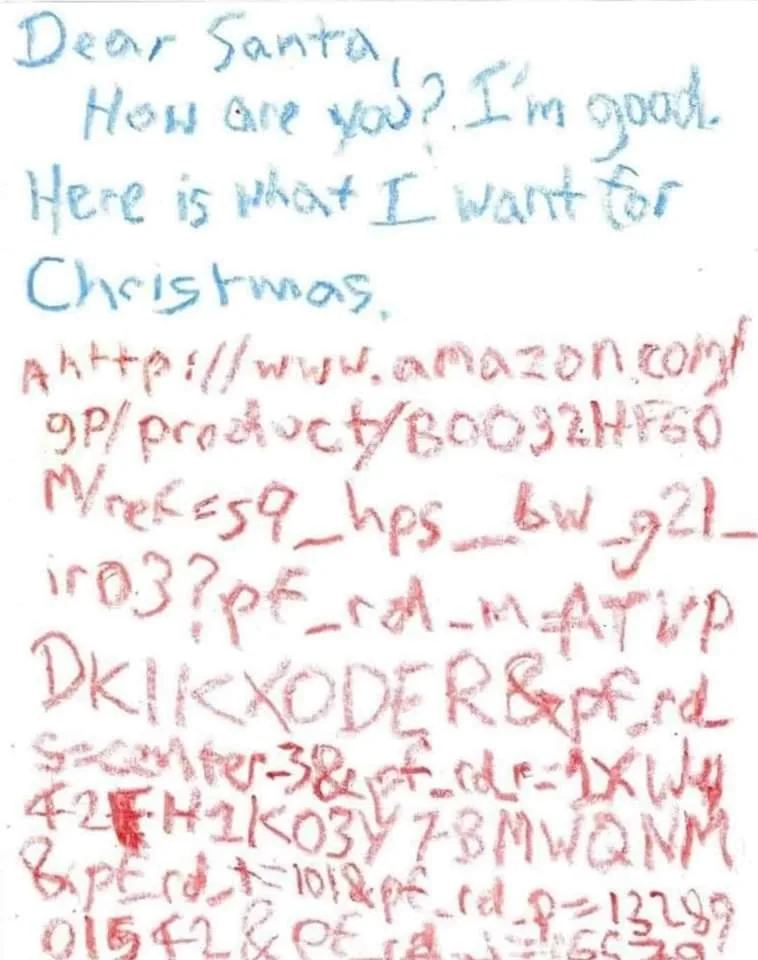 Dear Santa,
How are you? I'm good.
Here is what I want for
Christmas.
A http://www.amazon.com/
gp/product/B0032HF60
M/ref=s9_hps_bw_g21_
ir03?pf_rd_m=ATVP
DKIKX0DER&pf_rd_
s=center-3&pf_rd_r=1XWY
42FH1K03Y78MWQNM
&pf_rd_t=101&pf_rd_p=13289
01542&pf_rd_i=